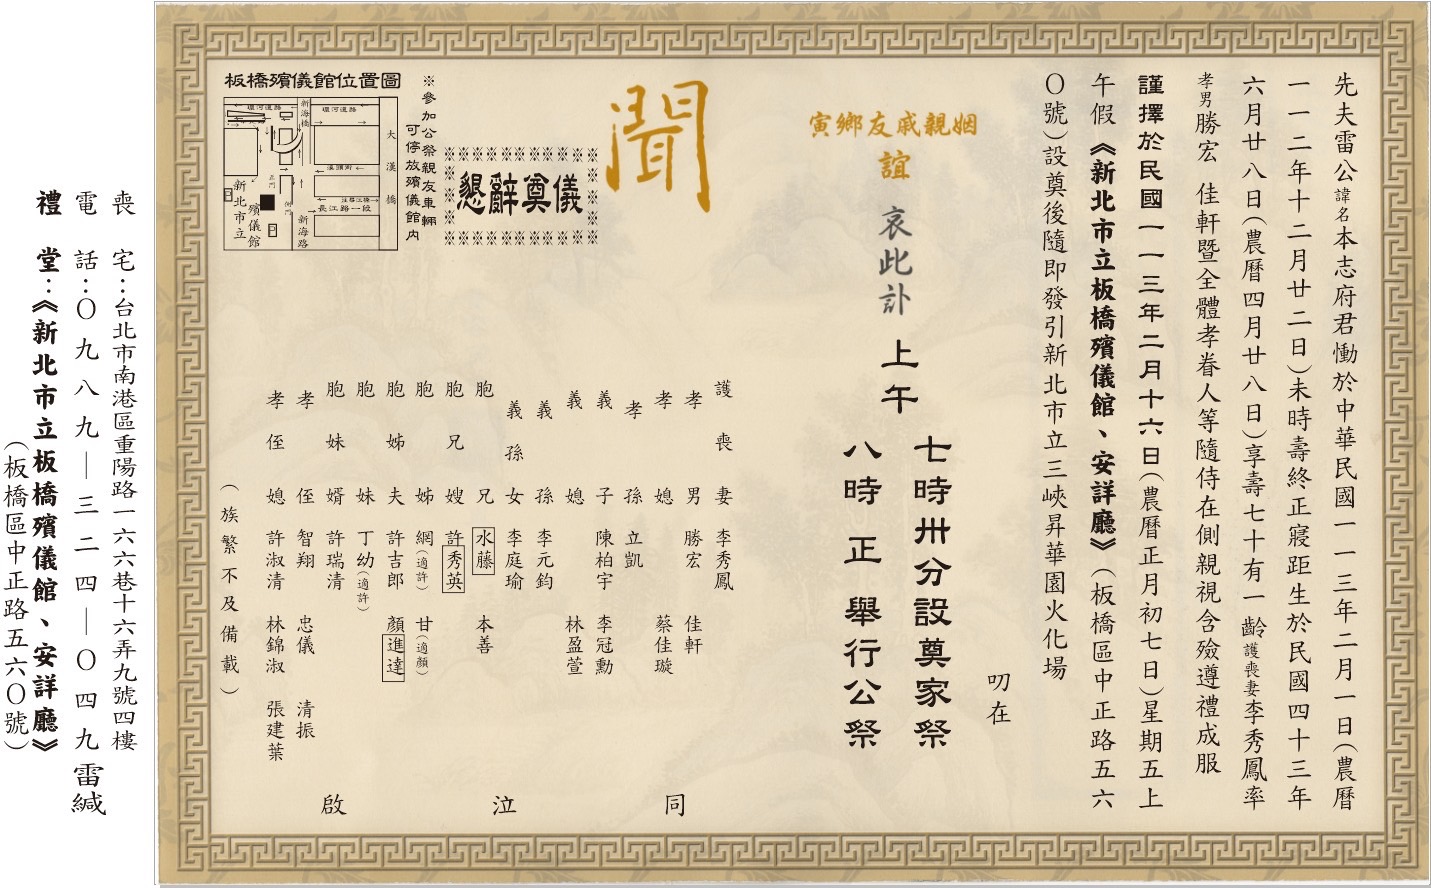 先夫雷公諱名本志府君慟於中華民國一一三年二月一日(農曆
一一二年十二月廿二日)未時壽終正寢距生於民國四十三年
六月廿八日(農曆四月廿八日)享壽七十有一齡護喪妻李秀鳳率
孝男勝宏 佳軒暨全體孝眷人等隨侍在側親視含殮遵禮成服
謹擇於民國一一三年二月十六日(農曆正月初七日)星期五上
午假《新北市立板橋殯儀館、安詳廳》(板橋區中正路五六
〇號)設奠後隨即發引新北市立三峽昇華園火化場
叨在
姻親戚友鄉寅
誼
哀此訃
上午
七時卅分設奠家祭
八時正舉行公祭
聞
懇辭奠儀
護喪妻 李秀鳳
孝男 勝宏 佳軒
孝媳 蔡佳璇
孝孫 立凱
義子 陳柏宇 李冠勳
義媳 林盈萱
義孫 李元鈞
義孫女 李庭瑜
胞兄 水藤 本善
胞兄嫂 許秀英
胞姊 網(適許) 甘(適顏)
胞姊夫 許吉郎 顏進達
胞妹 丁幼(適許)
胞妹婿 許瑞清
孝侄 智翔 忠儀 清振
孝侄媳 許淑清 林錦淑 張建葉
(族繁不及備載)
同泣啟
※參加公祭親友車輛
可停放殯儀館內
板橋殯儀館位置圖
環河道路
環河道路
新海橋
大漢橋
溪頭街
正門
側門
往新江橋
長江路一段
新北市立
殯儀館
新海路
P
P
喪宅:台北市南港區重陽路一六六巷十六弄九號四樓
電話:〇九八九—三二四—〇四九 雷緘
禮堂:《新北市立板橋殯儀館、安詳廳》
(板橋區中正路五六〇號)